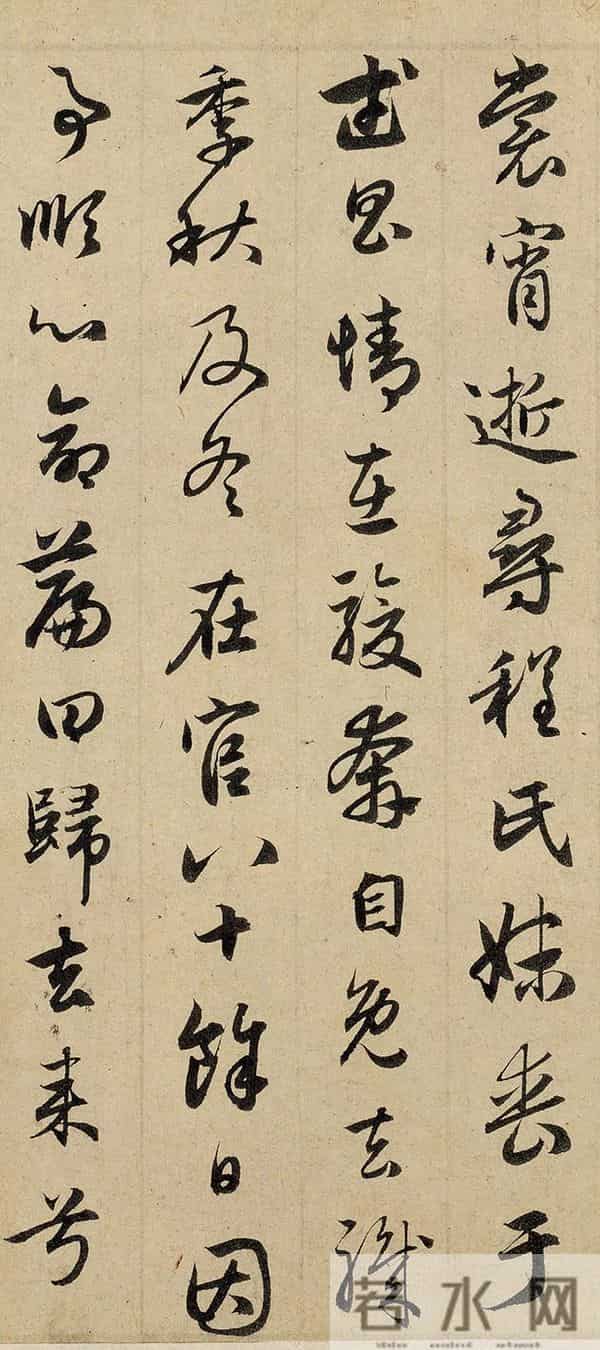 裳宵逝尋程氏妹喪于
武昌情在駿奔自免去職
季秋及冬在官八十餘日因
事順心命篇曰歸去來兮
若水网